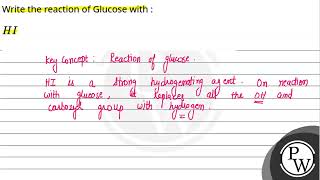 Write the reaction of Glucose with :
HI
Key Concept : Reaction of glucose.
HI is a strong hydrogenating agent. On reaction
with glucose, it replaces all the OH and
carbonyl group with hydrogen.
P
W